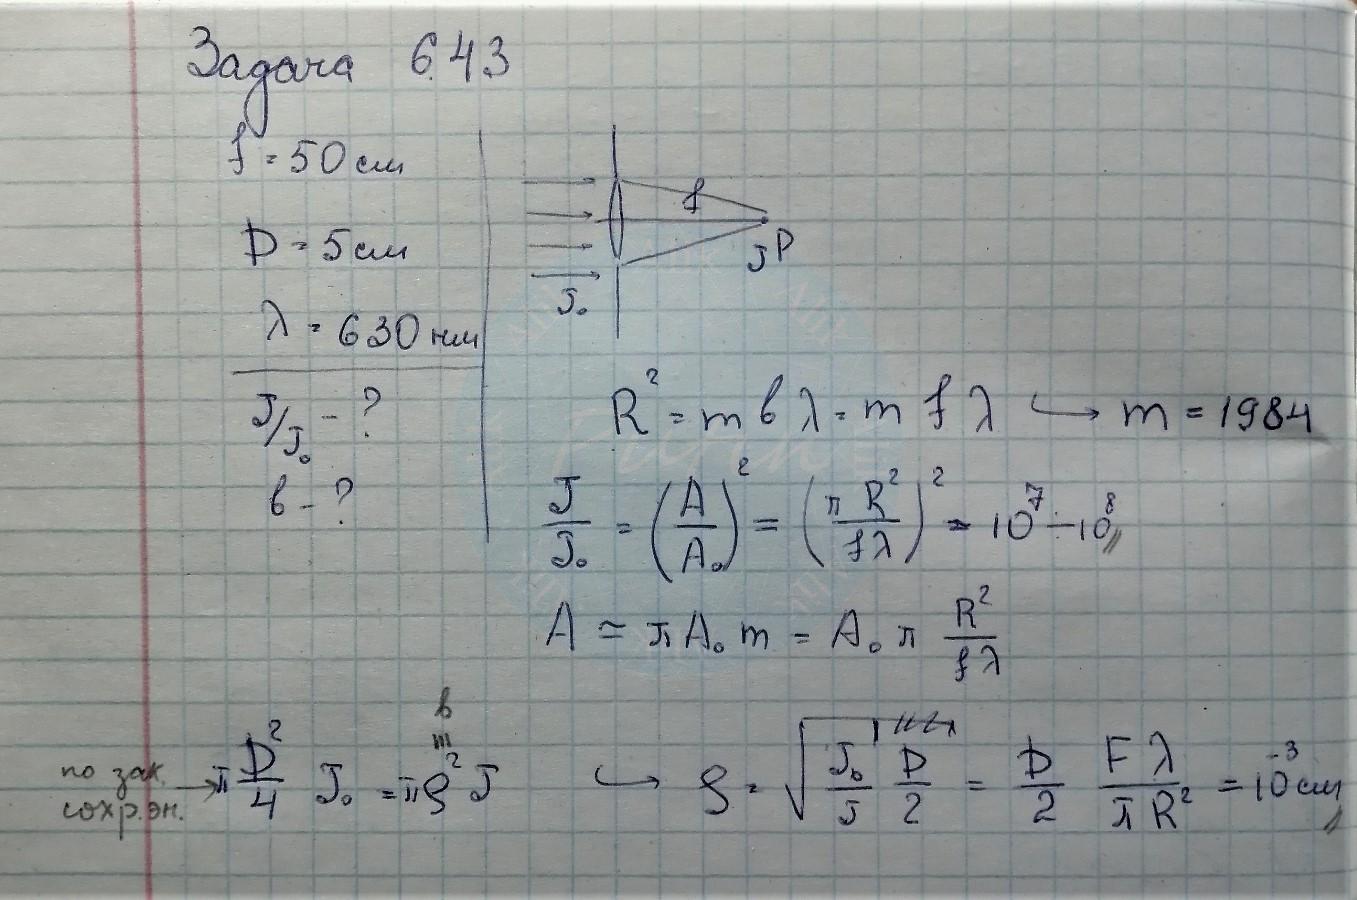 Задача 6.43
f = 50 см
D = 5 см
λ = 630 нм
J/J₀ - ?
b - ?
f
P
J
J₀
R² = m b λ = m f λ ↪ m = 1984
J/J₀ = (A/A₀)² = (π R²/fλ)² = 10⁷ ÷ 10⁸
A ≃ π A₀ m = A₀ π R²/fλ
b
по зак. сохр. эн. → π D²/4 J₀ = π ρ² J ↪ ρ = √(J₀/J) D/2 = D/2 Fλ/πR² = 10⁻³ см